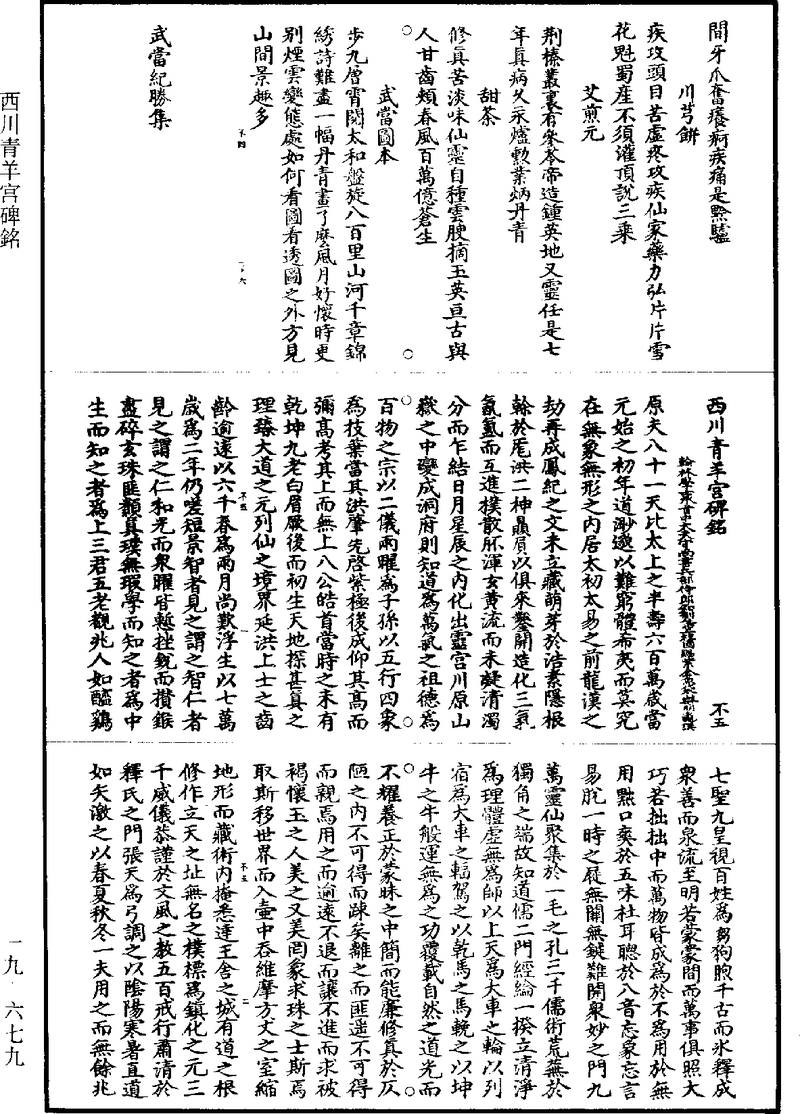 間牙爪奮癢痾疾痛是黥驢
川芎餅
疾攻頭目苦虛疼攻疾仙家藥力弘片片雪
花魁蜀産不須灌頂說三乘
艾煎元
荆榛叢裏有參苓帝造鍾英地又靈任是七
年真病久永爐勲業炳丹青
甜茶
修真苦淡味仙靈自種雲腴摘玉英亘古與
人甘齒頰春風百萬億蒼生
武當圖本
步九層霄闕太和盤旋八百里山河千章錦
綉詩難盡一幅丹青畫了麼風月好懷時更
别煙雲變態處如何看圖看透圖之外方見
山間景趣多
武當紀勝集
西川青羊宫碑銘
不五
原夫八十一天比太上之半壽六百萬歲當
元始之初年道渺邈以難窮體希夷而莫究
在無象無形之内居太初太易之前龍漢之
劫再成鳳紀之文未立藏萌芽於浩素隱根
幹於厖洪二神贔屓以俱來鑿開造化三氣
氤氳而互進樸散胚渾玄黄流而未凝清濁
分而乍結日月星辰之内化出靈宫川原山
嶽之中變成洞府則知道爲萬氣之祖德爲
百物之宗以二儀兩曜爲子孫以五行四象
爲枝葉當其洪肇先啓紫極後成仰其高而
彌高考其上而無上八公皓首當時之未有
乾坤九老白眉厥後而初生天地探甚真之
理臻大道之元列仙之境界延洪上士之齒
齡逾遠以六千春爲兩月尚歎浮生以七萬
歲爲二年仍嗟短景智者見之謂之智仁者
見之謂之仁和光而衆曜皆慙挫銳而攢鋒
盡碎玄珠匪纇真璞無瑕學而知之者爲中
生而知之者爲上三君五老觀兆人如醯鷄
七聖九皇視百姓爲芻狗煦千古而氷釋成
衆善而泉流至明若蒙蒙間而萬事俱照大
巧若拙拙中而萬物皆成爲於不爲用於無
用黙口奭於五味杜耳聰於八音忘象忘言
易脱一時之屣無關無鍵難開衆妙之門九
萬靈仙聚集於一毛之孔三千儒術荒無於
獨角之端故知道儒二門經綸一揆立清淨
爲理體虛無爲師以上天爲大車之輪以列
宿爲大車之輻駕之以乾馬之馬輓之以坤
牛之牛般運無爲之功覆載自然之道光而
不耀養正於蒙昧之中簡而能廉修真於仄
陋之内不可得而踈矣離之而匪遥不可得
而親焉用之而逾遠不退而讓不進而求被
褐懷玉之人美之又美罔象求珠之士斯焉
取斯移世界而入壷中吞維摩方丈之室縮
地形而藏術内掩悉達王舍之城有道之根
修作立天之址無名之樸標爲鎮化之元三
千威儀恭謹於文風之教五百戒行肅清於
釋氏之門張天爲弓調之以陰陽寒暑直道
如矢激之以春夏秋冬一夫用之而無餘兆
西川青羊宫碑銘
一九
六七九